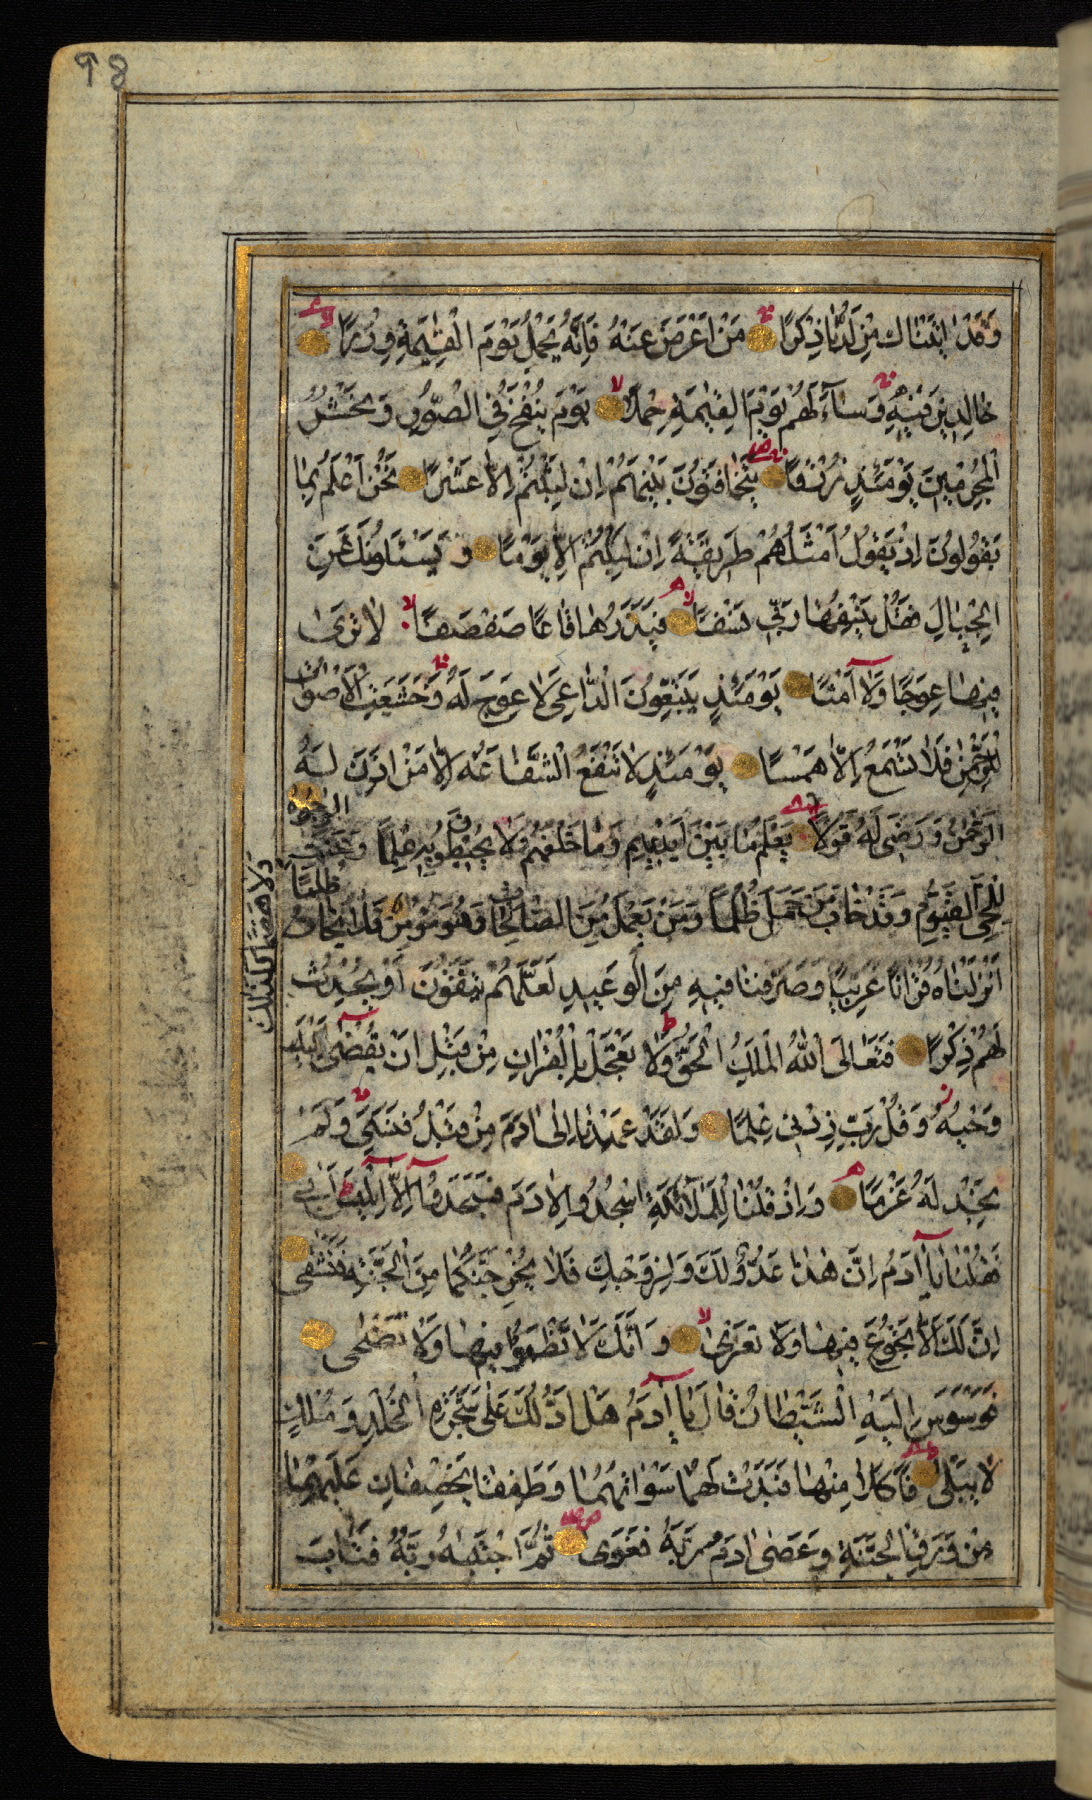 98
وَقَدْ اٰتَيْنَاكَ مِنْ لَدُنَّا ذِكْرًا مَنْ اَعْرَضَ عَنْهُ فَاِنَّهُ يَحْمِلُ يَوْمَ الْقِيٰمَةِ وِزْرًا
خَالِدِينَ فِيهِ وَسَآءَ لَهُمْ يَوْمَ الْقِيٰمَةِ حِمْلًا يَوْمَ يُنْفَخُ فِي الصُّورِ وَنَحْشُرُ
الْمُجْرِمِينَ يَوْمَئِذٍ زُرْقًا يَتَخَافَتُونَ بَيْنَهُمْ اِنْ لَبِثْتُمْ اِلَّا عَشْرًا نَحْنُ اَعْلَمُ بِمَا
يَقُولُونَ اِذْ يَقُولُ اَمْثَلُهُمْ طَرِيقَةً اِنْ لَبِثْتُمْ اِلَّا يَوْمًا وَيَسْئَلُونَكَ عَنِ
الْجِبَالِ فَقُلْ يَنْسِفُهَا رَبِّي نَسْفًا فَيَذَرُهَا قَاعًا صَفْصَفًا لَا تَرٰى
فِيهَا عِوَجًا وَلَا اَمْتًا يَوْمَئِذٍ يَتَّبِعُونَ الدَّاعِيَ لَا عِوَجَ لَهُ وَخَشَعَتِ الْاَصْوَاتُ
لِلرَّحْمٰنِ فَلَا تَسْمَعُ اِلَّا هَمْسًا يَوْمَئِذٍ لَا تَنْفَعُ الشَّفَاعَةُ اِلَّا مَنْ اَذِنَ لَهُ
الرَّحْمٰنُ وَرَضِيَ لَهُ قَوْلًا يَعْلَمُ مَا بَيْنَ اَيْدِيهِمْ وَمَا خَلْفَهُمْ وَلَا يُحِيطُونَ بِهِ عِلْمًا وَعَنَتِ الْوُجُوهُ
لِلْحَيِّ الْقَيُّومِ وَقَدْ خَابَ مَنْ حَمَلَ ظُلْمًا وَمَنْ يَعْمَلْ مِنَ الصَّالِحَاتِ وَهُوَ مُؤْمِنٌ فَلَا يَخَافُ ظُلْمًا
وَلَا هَضْمًا وَكَذٰلِكَ
اَنْزَلْنَاهُ قُرْاٰنًا عَرَبِيًّا وَصَرَّفْنَا فِيهِ مِنَ الْوَعِيدِ لَعَلَّهُمْ يَتَّقُونَ اَوْ يُحْدِثُ
لَهُمْ ذِكْرًا فَتَعَالَى اللّٰهُ الْمَلِكُ الْحَقُّ وَلَا تَعْجَلْ بِالْقُرْاٰنِ مِنْ قَبْلِ اَنْ يُقْضٰى اِلَيْكَ
وَحْيُهُ وَقُلْ رَبِّ زِدْنِي عِلْمًا وَلَقَدْ عَهِدْنَا اِلٰى اٰدَمَ مِنْ قَبْلُ فَنَسِيَ وَلَمْ
نَجِدْ لَهُ عَزْمًا وَاِذْ قُلْنَا لِلْمَلٰٓئِكَةِ اسْجُدُوا لِاٰدَمَ فَسَجَدُوا اِلَّا اِبْلِيسَ اَبٰى
فَقُلْنَا يَا اٰدَمُ اِنَّ هٰذَا عَدُوٌّ لَكَ وَلِزَوْجِكَ فَلَا يُخْرِجَنَّكُمَا مِنَ الْجَنَّةِ فَتَشْقٰى
اِنَّ لَكَ اَلَّا تَجُوعَ فِيهَا وَلَا تَعْرٰى وَاَنَّكَ لَا تَظْمَؤُا فِيهَا وَلَا تَضْحٰى
فَوَسْوَسَ اِلَيْهِ الشَّيْطَانُ قَالَ يَا اٰدَمُ هَلْ اَدُلُّكَ عَلٰى شَجَرَةِ الْخُلْدِ وَمُلْكٍ
لَا يَبْلٰى فَاَكَلَا مِنْهَا فَبَدَتْ لَهُمَا سَوْاٰتُهُمَا وَطَفِقَا يَخْصِفَانِ عَلَيْهِمَا
مِنْ وَرَقِ الْجَنَّةِ وَعَصٰى اٰدَمُ رَبَّهُ فَغَوٰى ثُمَّ اجْتَبٰهُ رَبُّهُ فَتَابَ